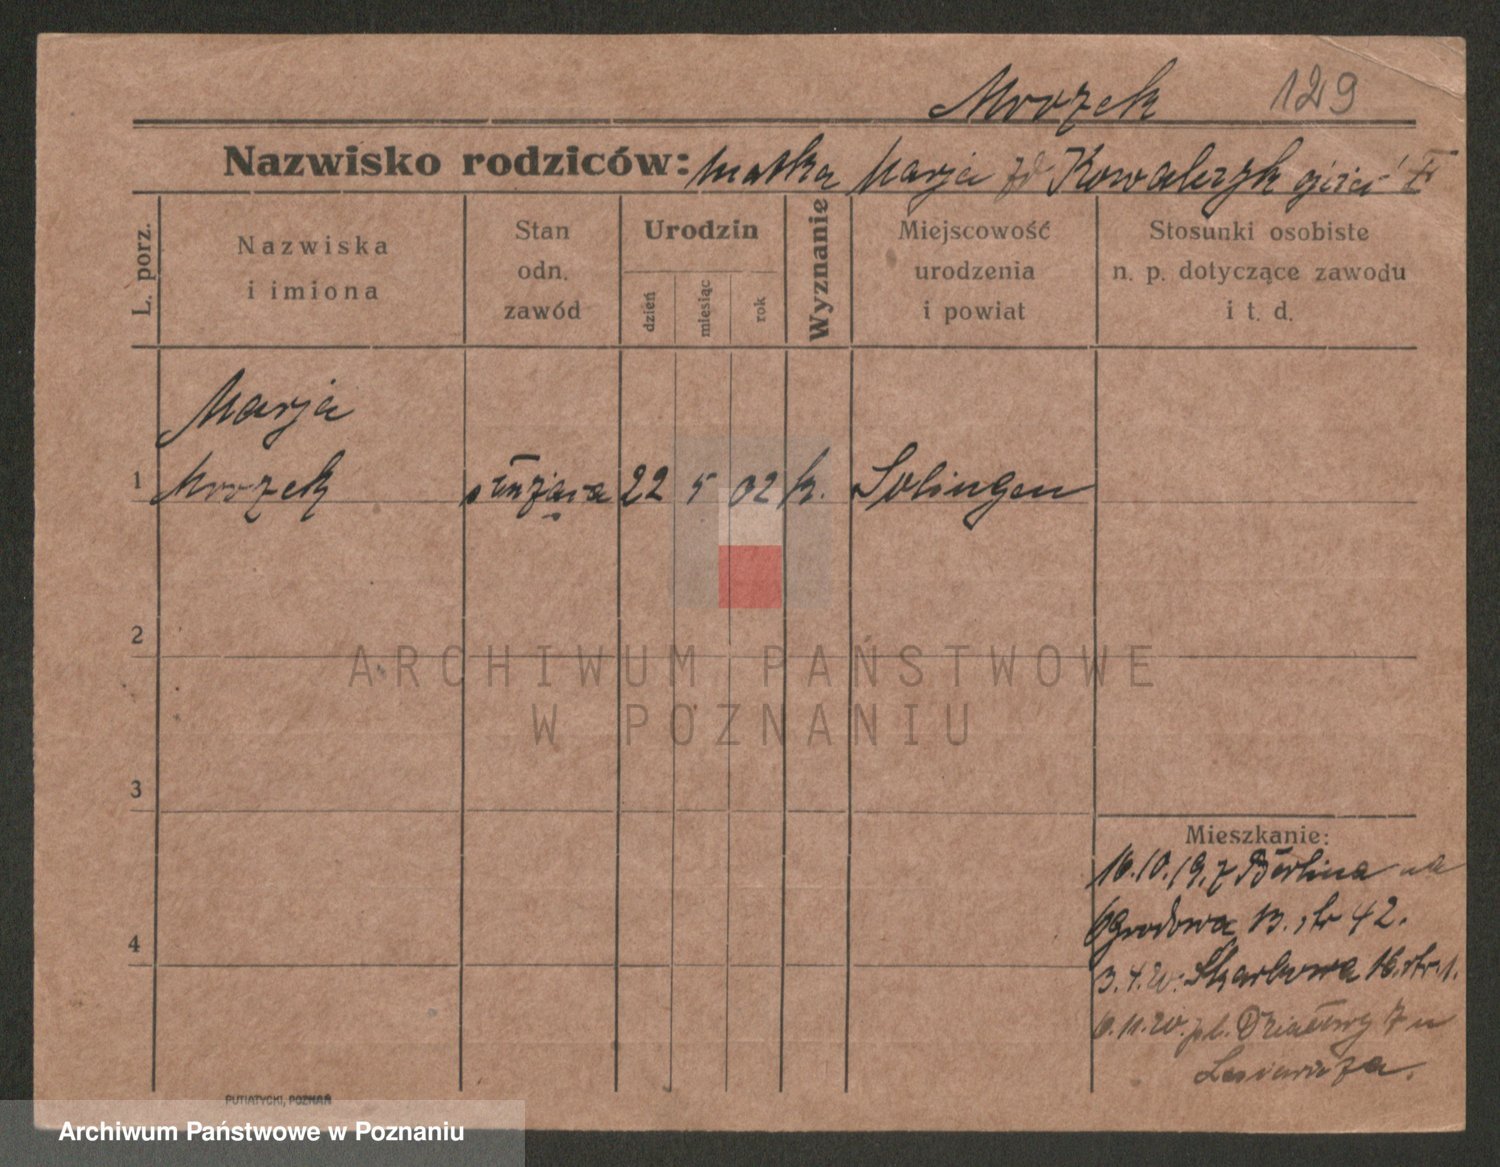 Mrozek 129
Nazwisko rodziców: matka Marja Kowalczyk
L. porz.
Nazwiska
i imiona
Stan
odn.
zawód
Urodzin
dzień
miesiąc
rok
Wyznanie
Miejscowość
urodzenia
i powiat
Stosunki osobiste
n. p. dotyczące zawodu
i t. d.
Marja
1 Mrozek służąca 22 5 02 k. Solingen
2
ARCHIWUM PAŃSTWOWE
W POZNANIU
3
Mieszkanie:
16.10.19. z Berlina na
Ogrodowa 13. str 42.
4
3.4.20. Skarbowa 16. str. 1.
6.11.20. pl. Działowy 7 u
PUTIATYCKI, POZNAŃ
Archiwum Państwowe w Poznaniu